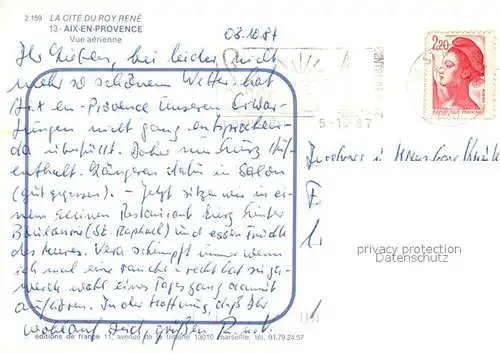 2.159 LA CITÉ DU ROY RENÉ
13 - AIX-EN-PROVENCE
Vue aérienne
03.10.87
Ihr Lieben, bei leider nicht
mehr so schönem Wetter hat
Aix en-Provence unseren Erwar-
tungen nicht ganz entsprochen-
da überfüllt. Daher nur kurz Auf-
enthalt. Längeren dafür in Salon
(gut gegessen). - Jetzt sitzen wir in ei-
nem kleinen Restaurant hinter
(St. Raphael) und essen Früchte
des Meeres. Vera schimpft immer wenn
ich mal eine rauche - recht hat sie ja-
werde wohl eines Tages ganz damit
aufhören. In der Hoffnung, daß Ihr
wohlauf seid, grüßen
2,20
REPUBLIQUE FRANÇAISE
5-10-87
privacy protection
Datenschutz
© éditions de france 11, avenue de la timone 13010 marseille, tél. 91.79.24.57